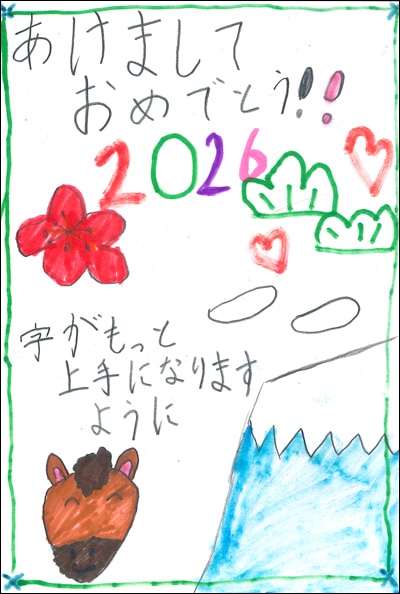 あけまして
おめでとう!!
2026
字がもっと
上手になります
ように